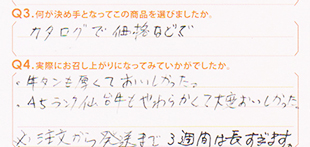 Q3.何が決め手となってこの商品を選びましたか。
カタログで価格などで
Q4.実際にお召し上がりになってみていかがでしたか。
・牛タンも厚くておいしかった。
・A5ランク仙台牛もやわらかくて大変おいしかった。
又、注文から発送まで3週間は長すぎます。